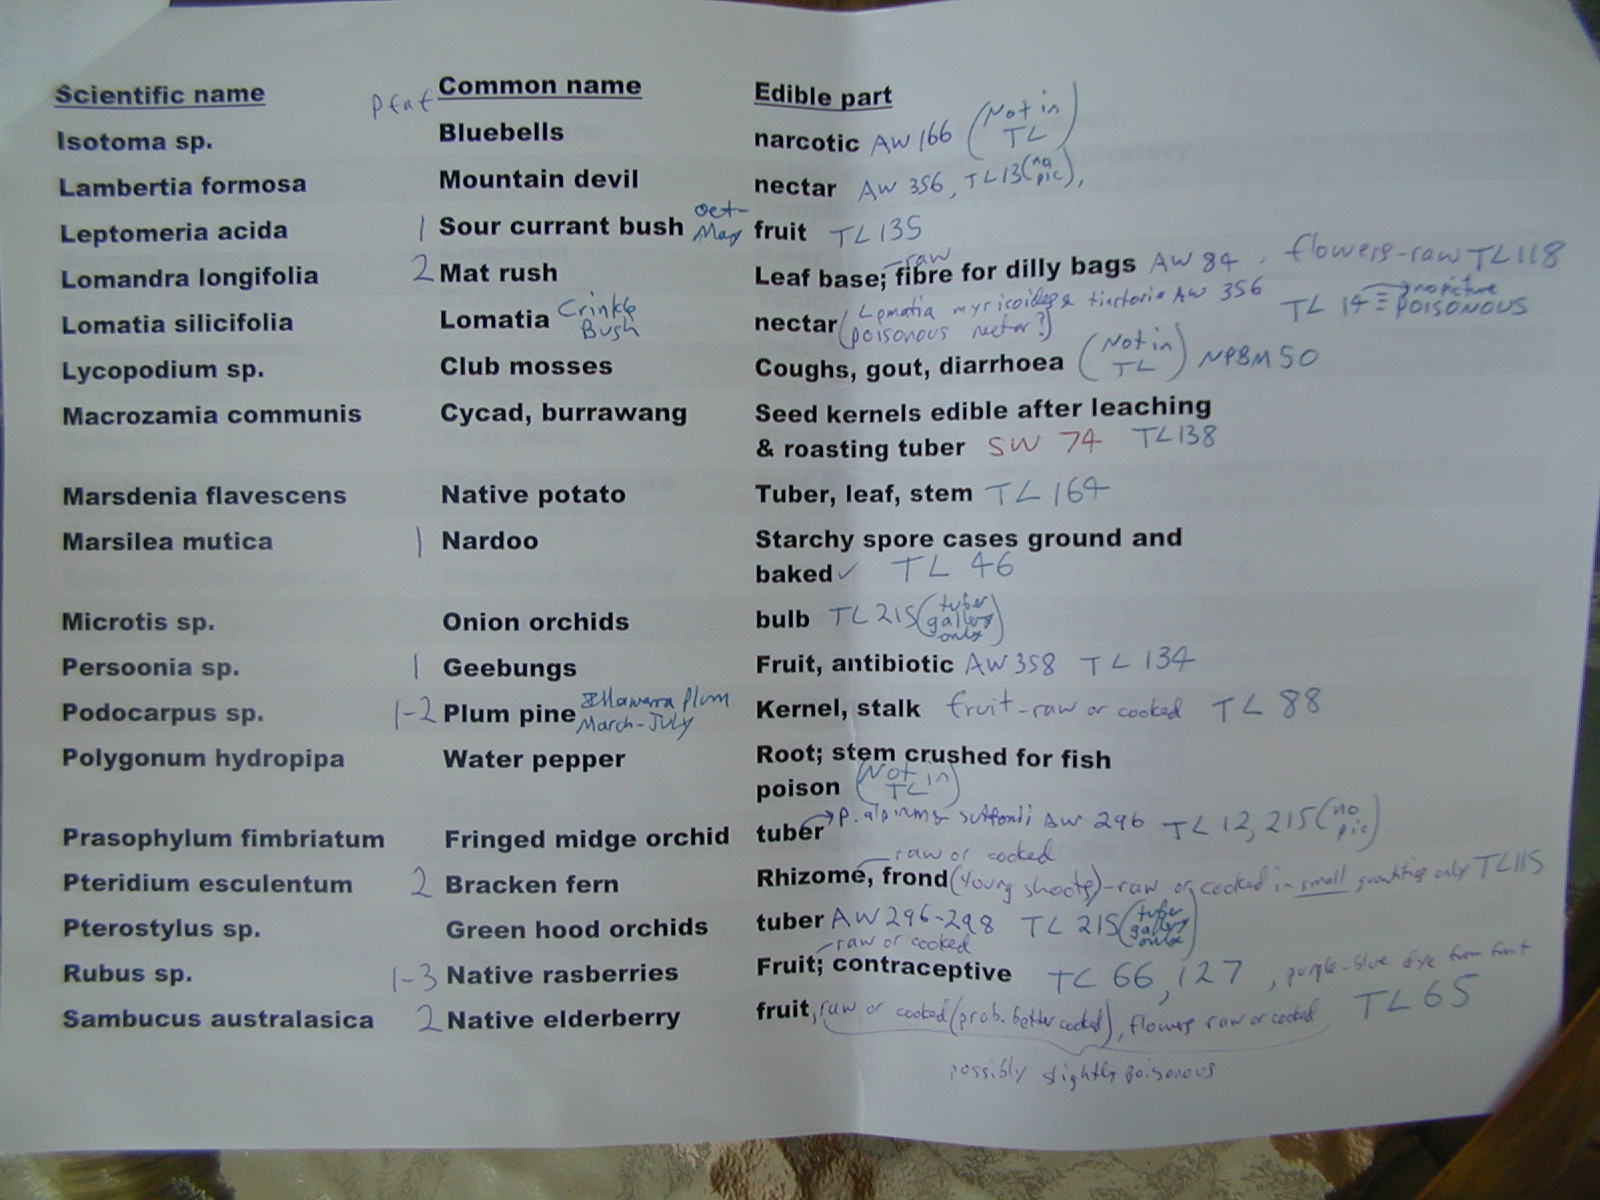 Scientific name pfaf Common name Edible part
Isotoma sp. Bluebells narcotic AW 166 (Not in TL)
Lambertia formosa Mountain devil nectar AW 356, TL13 (no pic),
Leptomeria acida 1 Sour currant bush Oct-May fruit TL 135
Lomandra longifolia 2 Mat rush Leaf base; raw fibre for dilly bags AW 84, flowers-raw TL118
Lomatia silicifolia Lomatia Crinkle Bush nectar (Lomatia myricoides & tinctoria AW 356 TL 14 no picture POISONOUS
(poisonous nectar?)
Lycopodium sp. Club mosses Coughs, gout, diarrhoea (Not in TL) NPBM 50
Macrozamia communis Cycad, burrawang Seed kernels edible after leaching
& roasting tuber SW 74 TL138
Marsdenia flavescens Native potato Tuber, leaf, stem TL 164
Marsilea mutica 1 Nardoo Starchy spore cases ground and
baked ✓ TL 46
Microtis sp. Onion orchids bulb TL 215 (tuber gallery only)
Persoonia sp. 1 Geebungs Fruit, antibiotic AW 358 TL 134
Podocarpus sp. 1-2 Plum pine Illawarra Plum March-July Kernel, stalk fruit-raw or cooked TL 88
Polygonum hydropipa Water pepper Root; stem crushed for fish
poison (Not in TL)
Prasophylum fimbriatum Fringed midge orchid tuber → P. alpinum & suttonii AW 296 TL 12, 215 (no pic)
raw or cooked
Pteridium esculentum 2 Bracken fern Rhizome, frond (Young shoots)-raw or cooked in small quantities only TL115
Pterostylus sp. Green hood orchids tuber AW 296-298 TL 215 (tuber gallery only)
raw or cooked
Rubus sp. 1-3 Native rasberries Fruit; contraceptive TL 66, 127, purple-blue dye from fruit
Sambucus australasica 2 Native elderberry fruit, raw or cooked (prob. better cooked), flowers raw or cooked TL 65
possibly slightly poisonous